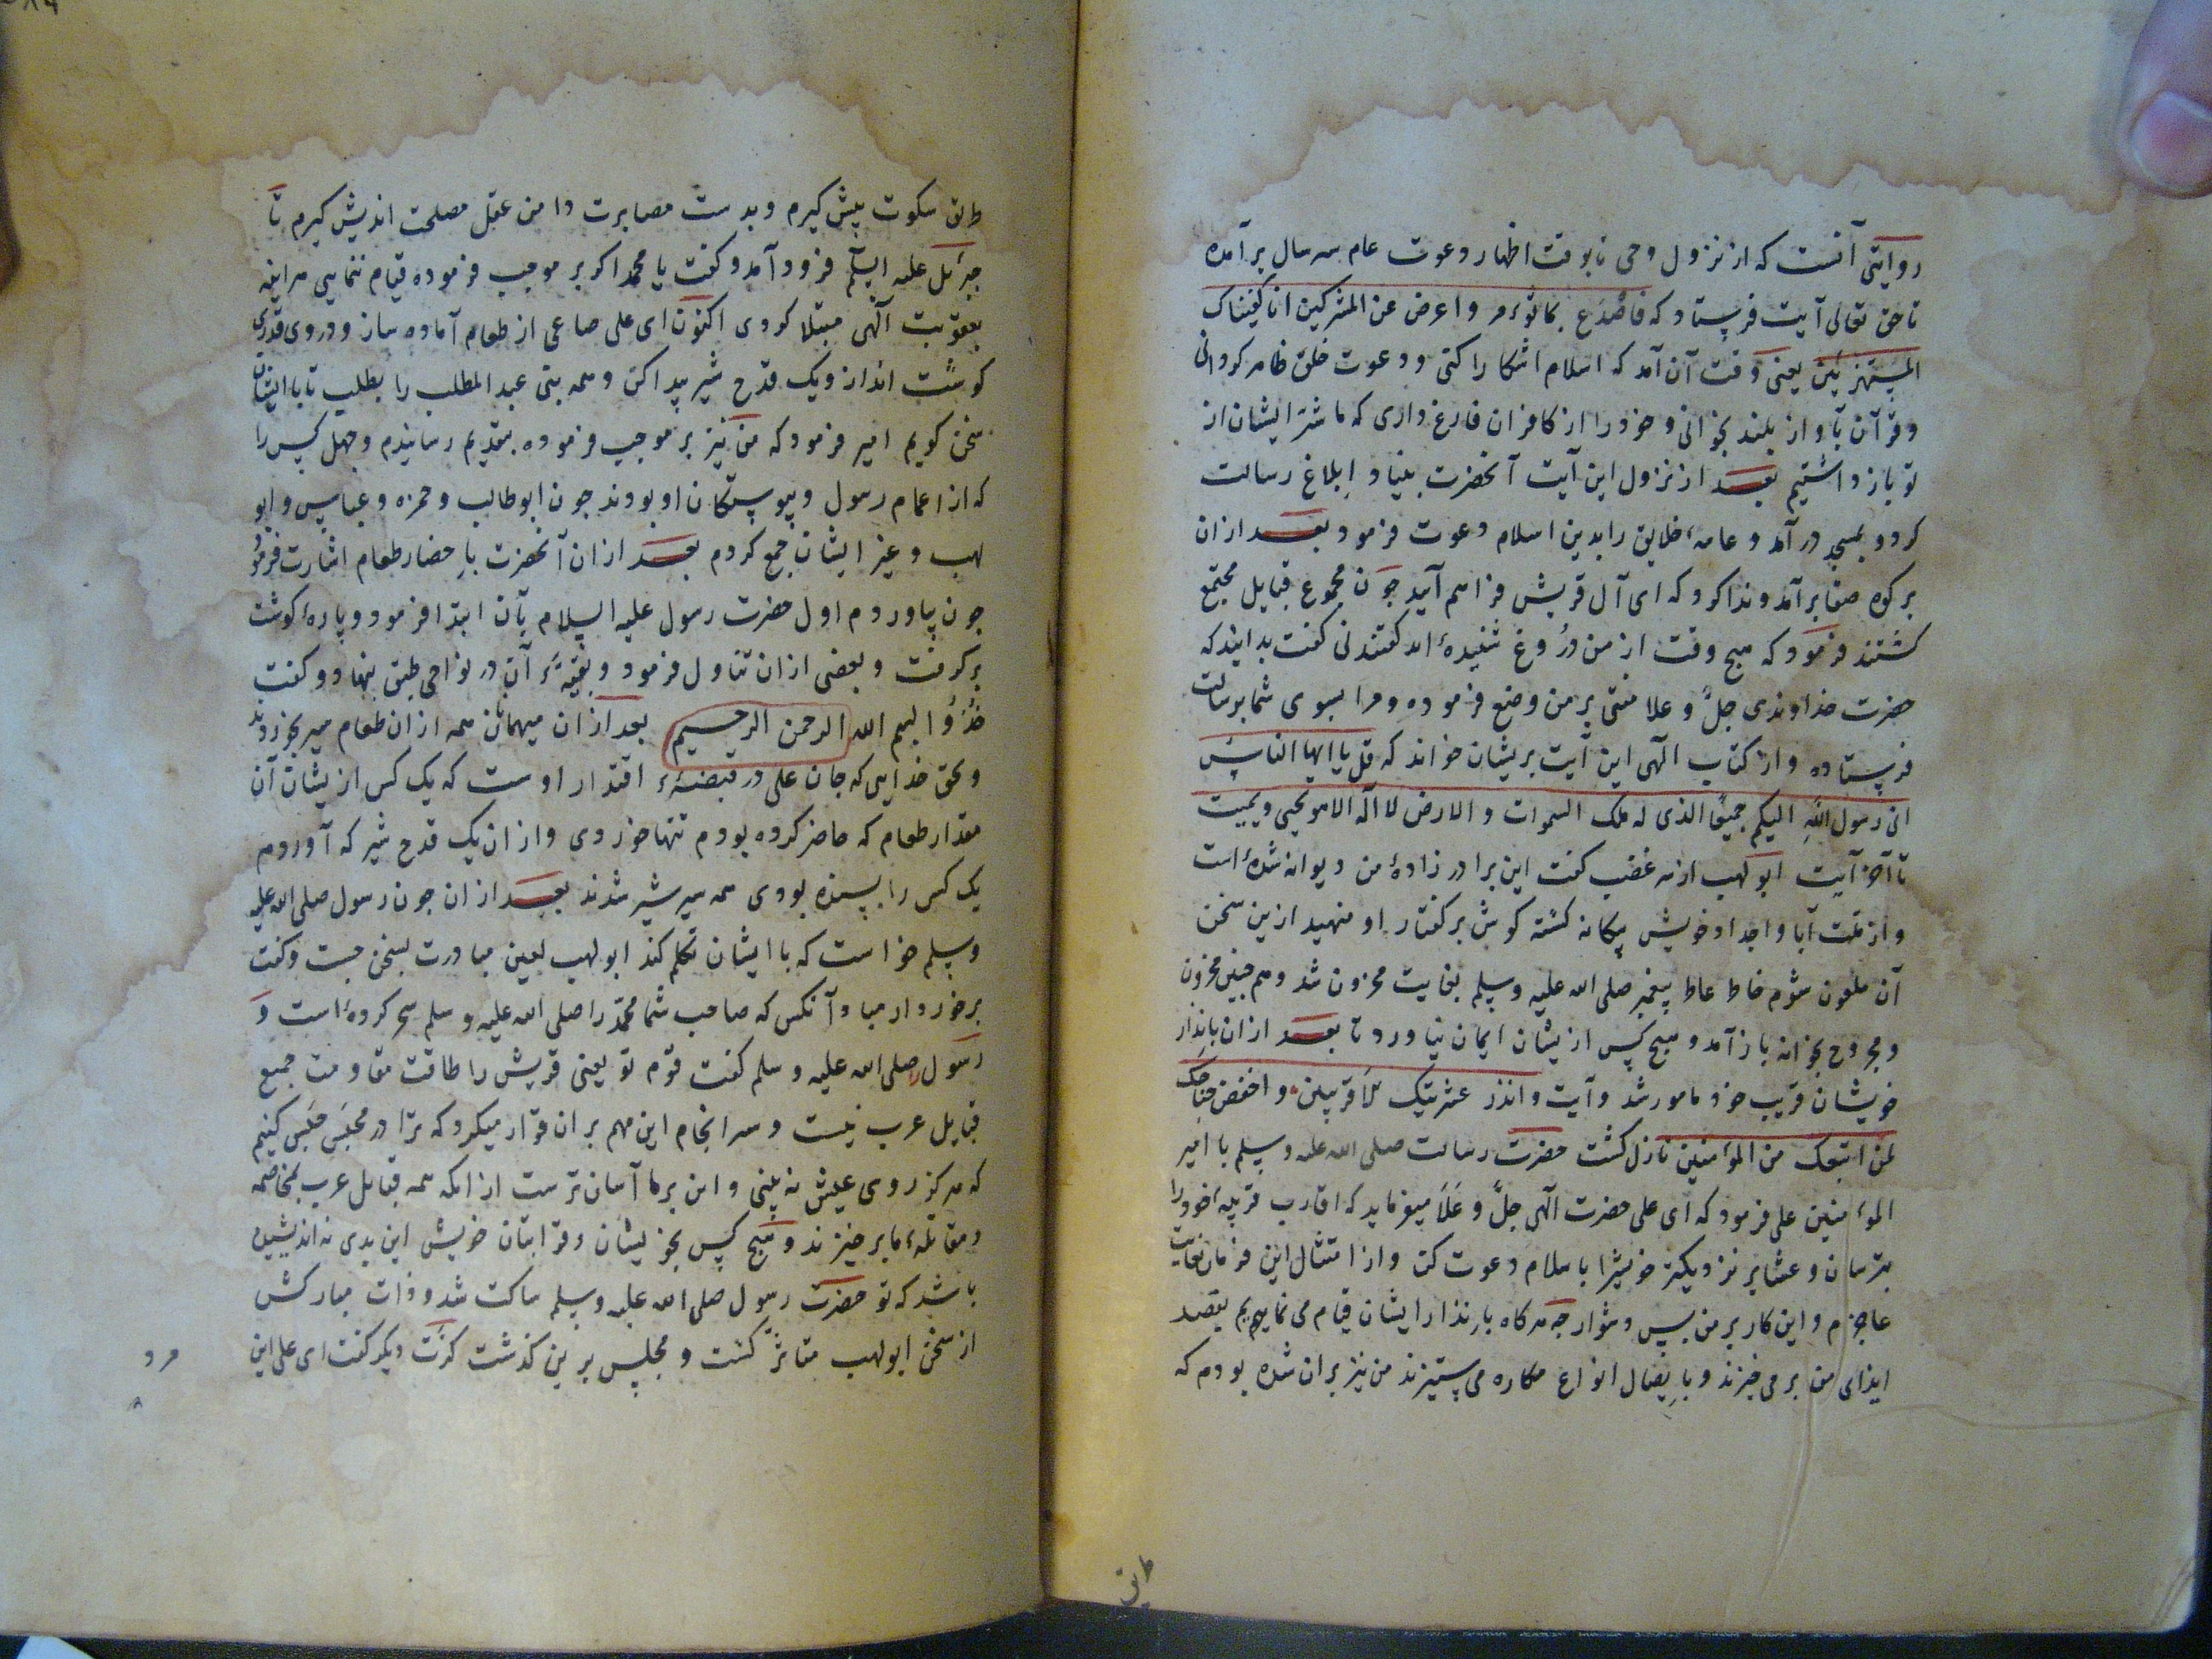 روایتی آنست که از نزول وحی تا بوقت اظهار دعوت عام سه سال برآمده
تا حق تعالی آیت فرستاد که فاصدع بما تؤمر و اعرض عن المشرکین انا کفیناک
المستهزئین یعنی وقت آن آمد که اسلام اشکارا کنی و دعوت خلق ظاهر کردانی
و قرآن بآواز بلند بخوانی و خود را از کافران فارغ داری که ما شر ایشان از
تو باز داشتیم بعد از نزول این آیت آنحضرت بنیاد ابلاغ رسالت
کرد و بمسجد درآمد و عامهٔ خلایق را بدین اسلام دعوت فرمود بعد ازان
بر کوه صفا برآمد و ندا کرد که ای آل قریش فراهم آیید جون مجموع قبایل مجتمع
کشتند فرمود که هیچ وقت از من دروغ شنیدهٔ اند کفتند نی کفت بدانید که
حضرت خداوندی جل و علا منتی بر من وضع فرموده و مرا بسوی شما برسالت
فرستاده و از کتاب آلهی این آیت بریشان خواند که قل یا ایها الناس
انی رسول الله الیکم جمیعا الذی له ملک السموات و الارض لا اله الا هو یحیی و یمیت
تا آخر آیت ابو لهب از سر غضب کفت این برادر زادهٔ من دیوانه شدهٔ است
و از ملت آبا و اجداد خویش بیکانه کشته کوش بر کفتار او منهید ازین سخن
آن ملعون شوم خاطر عاطر پیغمبر صلی الله علیه وسلم بغایت محزون شد و هم جنین محزون
و مجروح بخانه باز آمد و هیچ کس ازیشان ایمان نیاورد تا بعد ازان بانذار
خویشان قریب خود مامور شد و آیت و انذر عشیرتک الاقربین و اخفض جناحک
لمن اتبعک من المؤمنین نازل کشت حضرت رسالت صلی الله علیه وسلم با امیر
المؤمنین علی فرمود که ای علی حضرت آلهی جل و علا میفرماید که اقارب قریبهٔ خود را
بترسان و عشایر نزدیکتر خویش را باسلام دعوت کن و از امتثال این فرمان بغایت
عاجزم و این کار بر من بس دشوار جه هرکاه بانذار ایشان قیام می نماییم بقصد
ایذای من بر می خیزند و بایصال انواع مکاره می ستیزند من نیز بران شده بودم که
طریق
طریق سکوت پیش کیرم و بدست مصابرت دامن عقل مصلحت اندیش کیرم تا
جبرئل علیه السلم فرود آمد و کفت یا محمد اکر بر موجب فرموده قیام ننمایی هراینه
بعقوبت آلهی مبتلا کردی اکنون ای علی صاعی از طعام آماده ساز و در وی قدری
کوشت انداز و یک قدح شیر پیدا کن و همه بنی عبد المطلب را بطلب تا با ایشان
سخن کویم امیر فرمود که من نیز بر موجب فرموده بتقدیم رسانیدم و جهل کس را
که از اعمام رسول و پیوستکان او بودند جون ابو طالب و حمزه و عباس و ابو
لهب و غیر ایشان جمع کردم بعد ازان آنحضرت باحضار طعام اشارت فرمود
جون بیاوردم اول حضرت رسول علیه السلام بآن ابتدا فرمود و پارهٔ کوشت
برکرفت و بعضی ازان تناول فرمود و بقیهٔ آن در نواحی طبق بنهاد و کفت
خذوا بسم الله الرحمن الرحیم بعد ازان میهمانان همه ازان طعام سیر بخوردند
و بحق خدایی که جان علی در قبضهٔ اقتدار اوست که یک کس ازیشان آن
مقدار طعام که حاضر کرده بودم تنها خوردی و ازان یک قدح شیر که آوردم
یک کس را بسنده بودی همه سیر شیر شدند بعد ازان جون رسول صلی الله علیه
وسلم خواست که با ایشان تکلم کند ابو لهب لعین مبادرت بسخن جست و کفت
برخوردار مباد آنکس که صاحب شما محمد را صلی الله علیه و سلم سحر کردهٔ است و
رسول را صلی الله علیه و سلم کفت قوم تو یعنی قریش را طاقت مقاومت جمیع
قبایل عرب نیست و سرانجام این مهم بران قرار میکرد که ترا در محبس حبس کنیم
که هرکز روی عیش نه بینی و این بر ما آسان ترست ازانکه همه قبایل عرب بمخاصمه
و مقاتلهٔ ما برخیزند و هیچ کس بخویشان و قرابتان خویش این بدی نه اندیشیده
باشد که تو حضرت رسول صلی الله علیه وسلم ساکت شد و ذات مبارکش
از سخن ابو لهب متاثر کشت و مجلس برین کذشت کرت دیکر کفت ای علی این
مرد